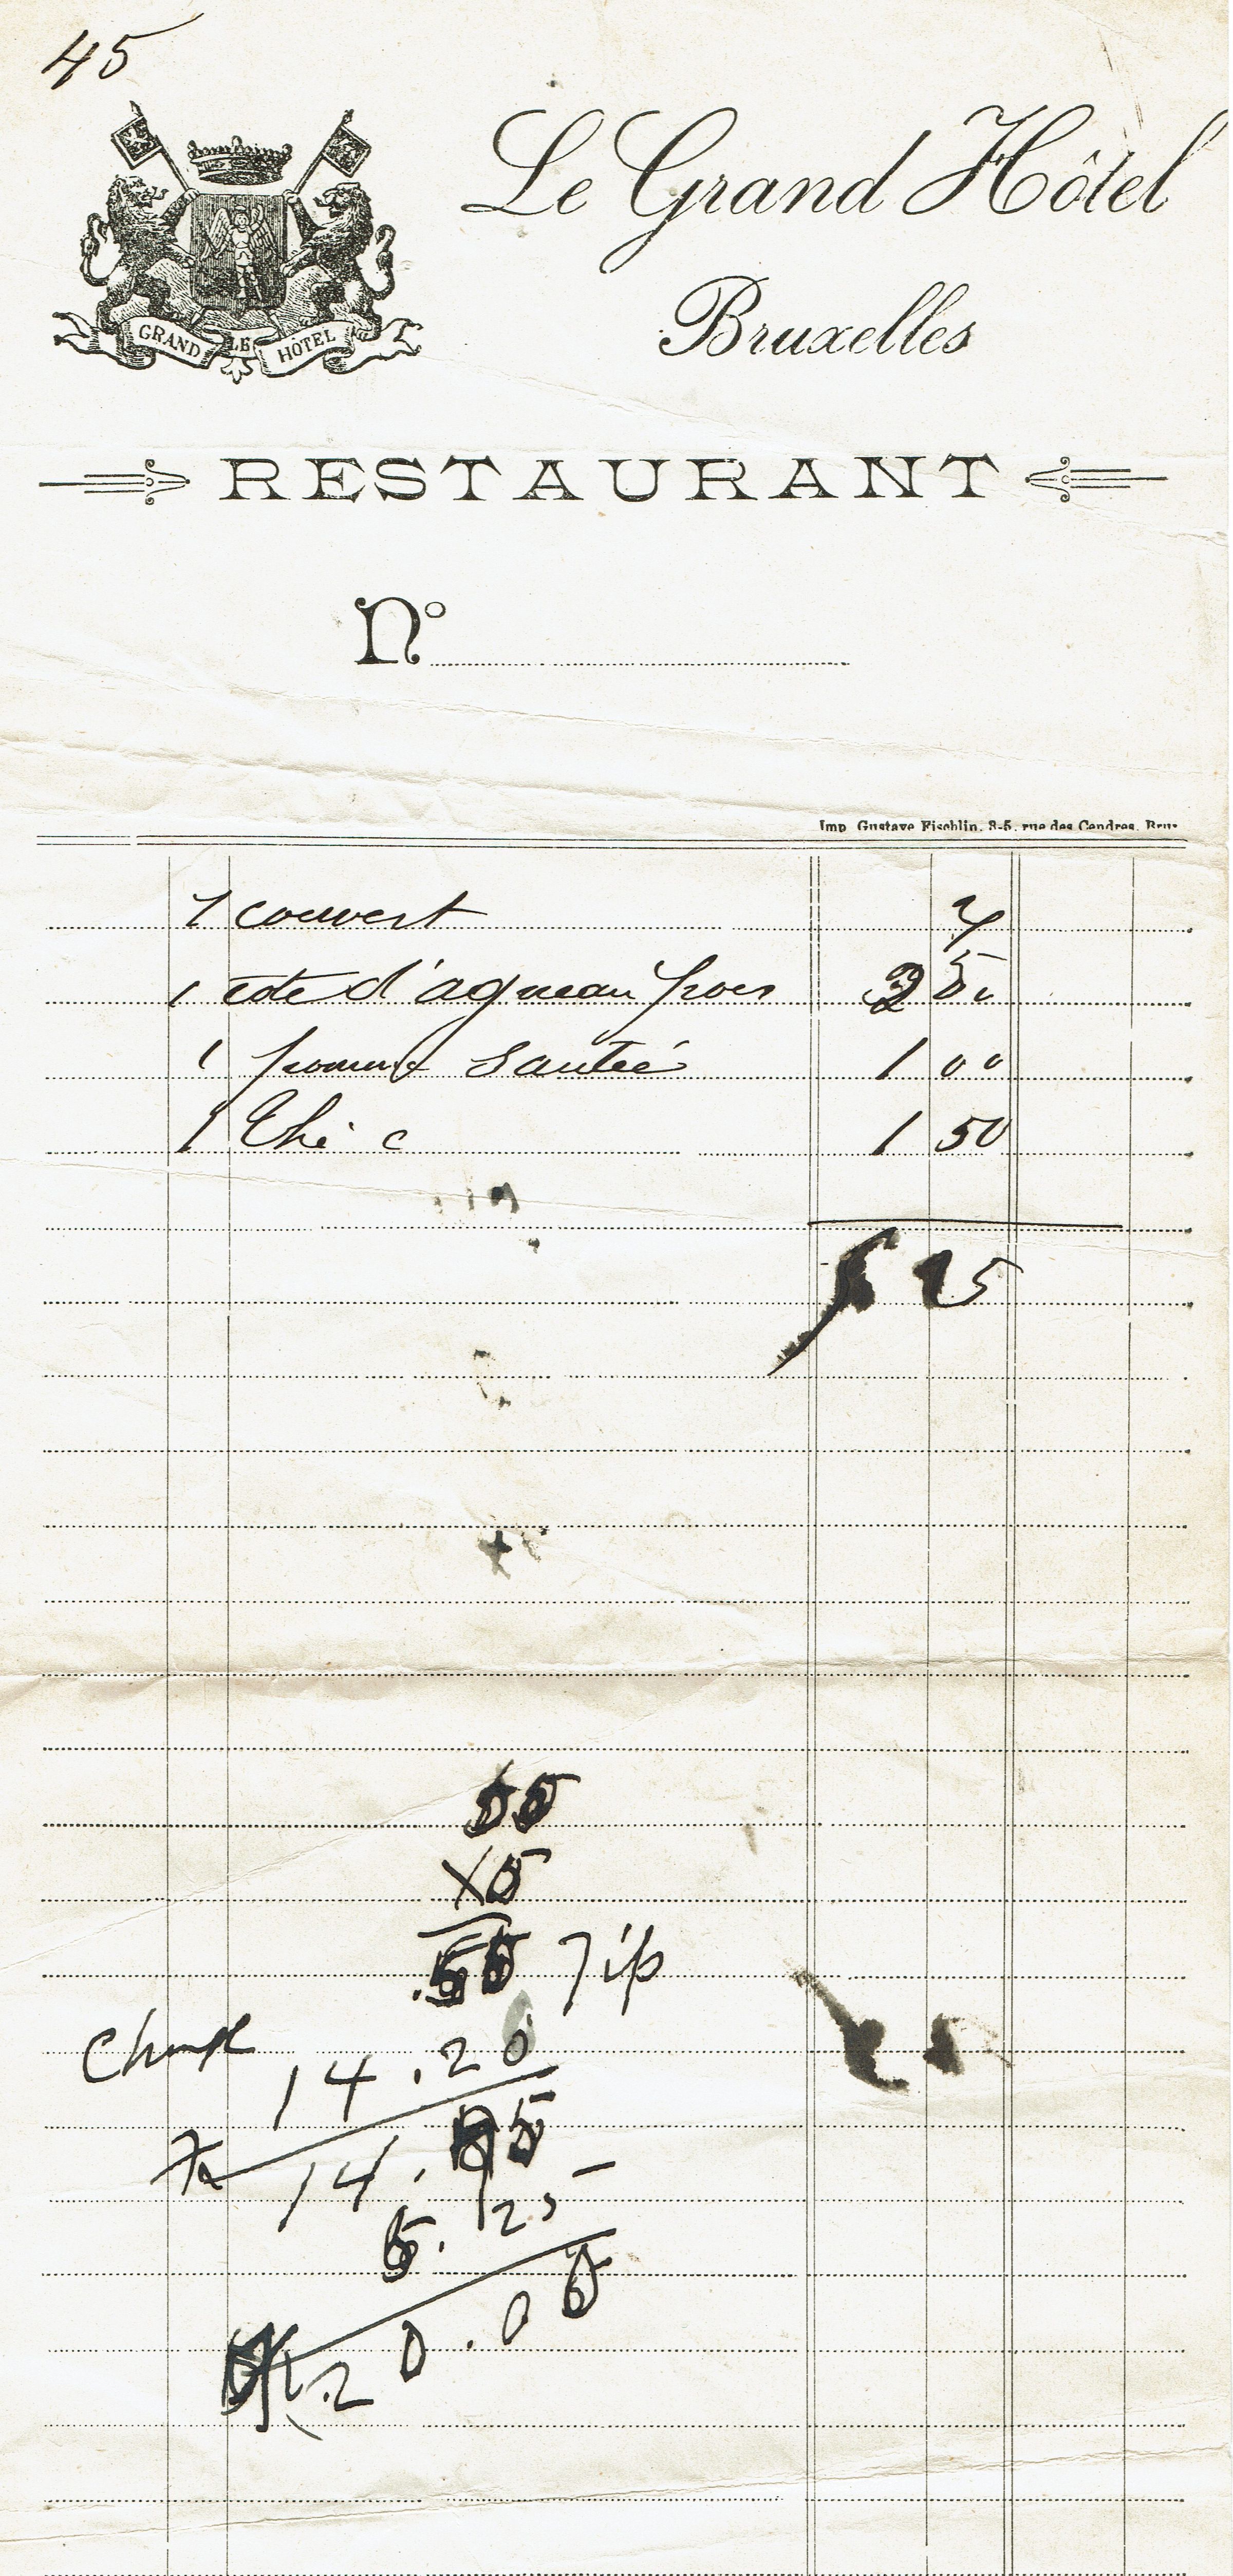 45
Le Grand Hôtel
GRAND LE HÔTEL
Bruxelles
RESTAURANT
No
Imp. Gustave Fischlin, 3-5, rue des Cendres, Brux.
1 couvert
1 côte d'agneau pois 50
1 pommes Sautée 1 00
1 Thé c 1 50
25
55
x5
Tip
Change 14.20
14. 5
5.25
20.00